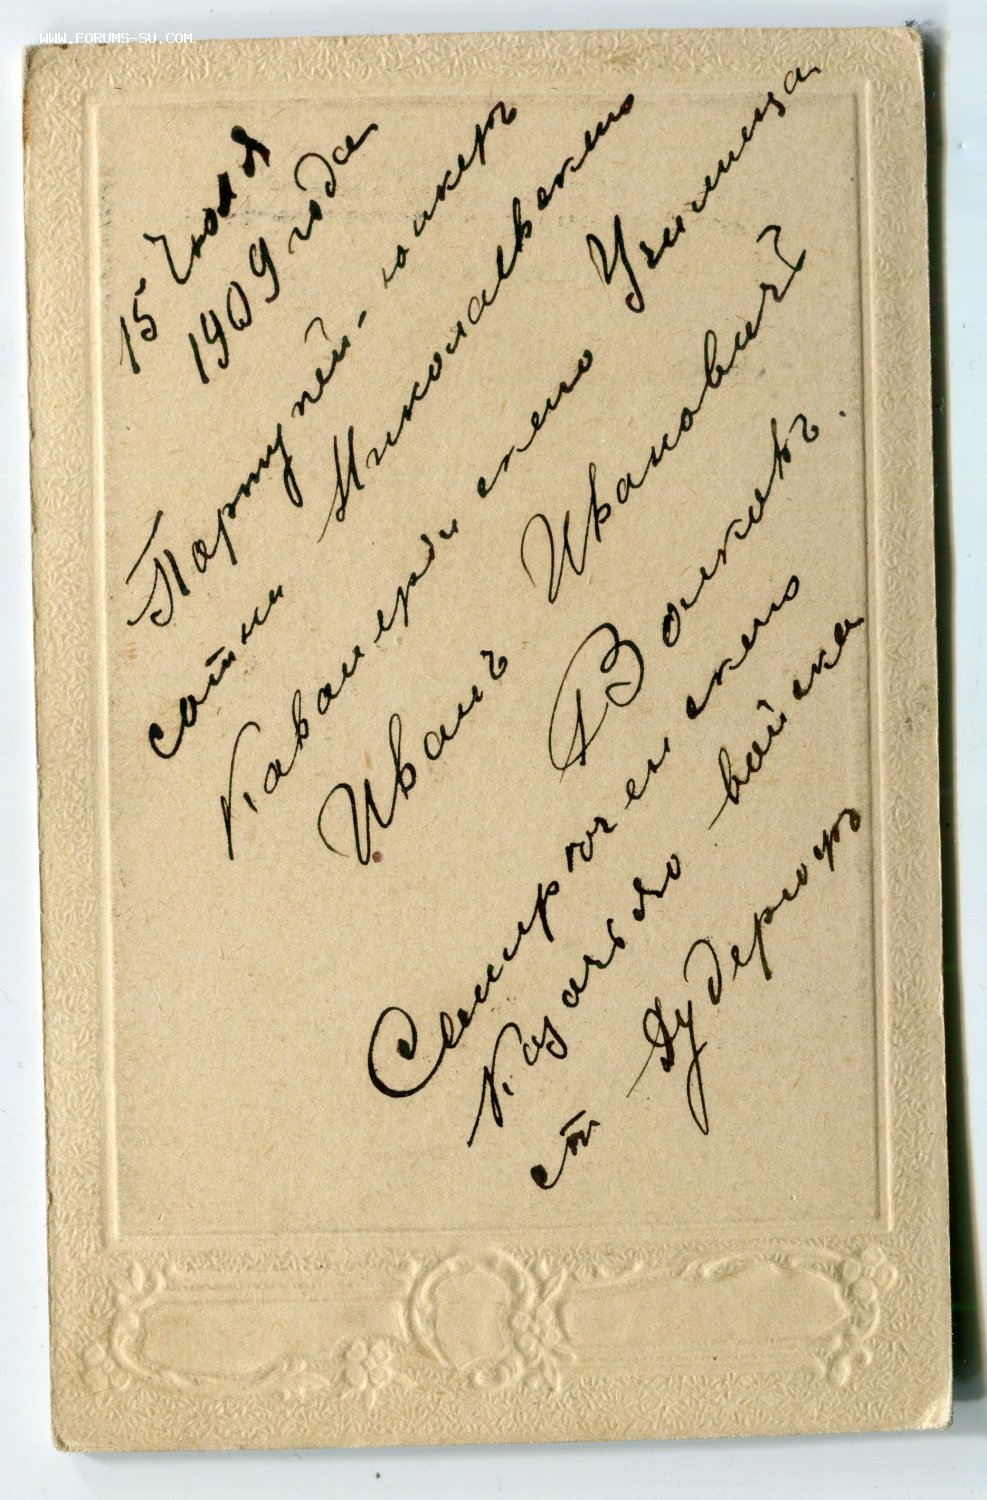 WWW.FORUMS-SU.COM
15 Июля
1909 года
Портупей-юнкеръ
сотни Николаевскаго
Кавалерійскаго Училища
Иванъ Ивановичъ
Волковъ.
Семирѣченскаго
Казачьяго войска
ст Дудергофъ